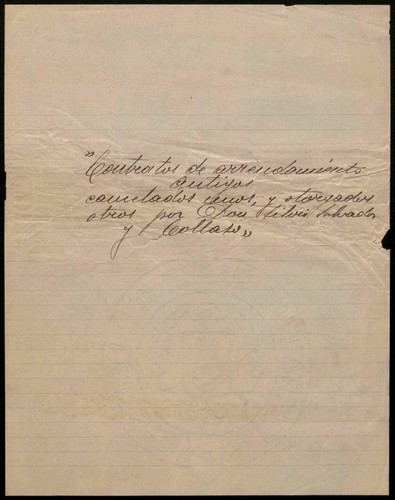 "Contratos de arrendamiento
antiguos
cancelados unos, y otorgados
otros por Don Silvio Salvador
y Collazo"